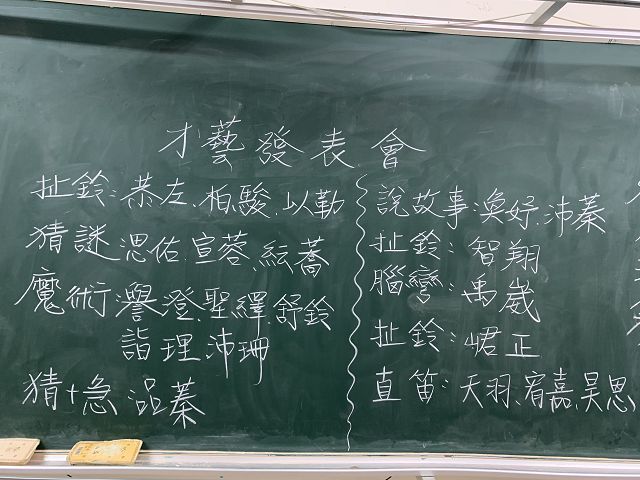 才藝發表會
扯鈴:恭左、柏駿、以勤
猜謎 思佑、宣蓉、紜蕎
魔術 譽澄、聖繹、舒鈴
詣理、沛珊
猜+急 品蓁
說故事:奐妤、沛蓁
扯鈴:智翔
腦彎:禹崴
扯鈴:峮正
直笛:天羽、宥嘉、昊恩